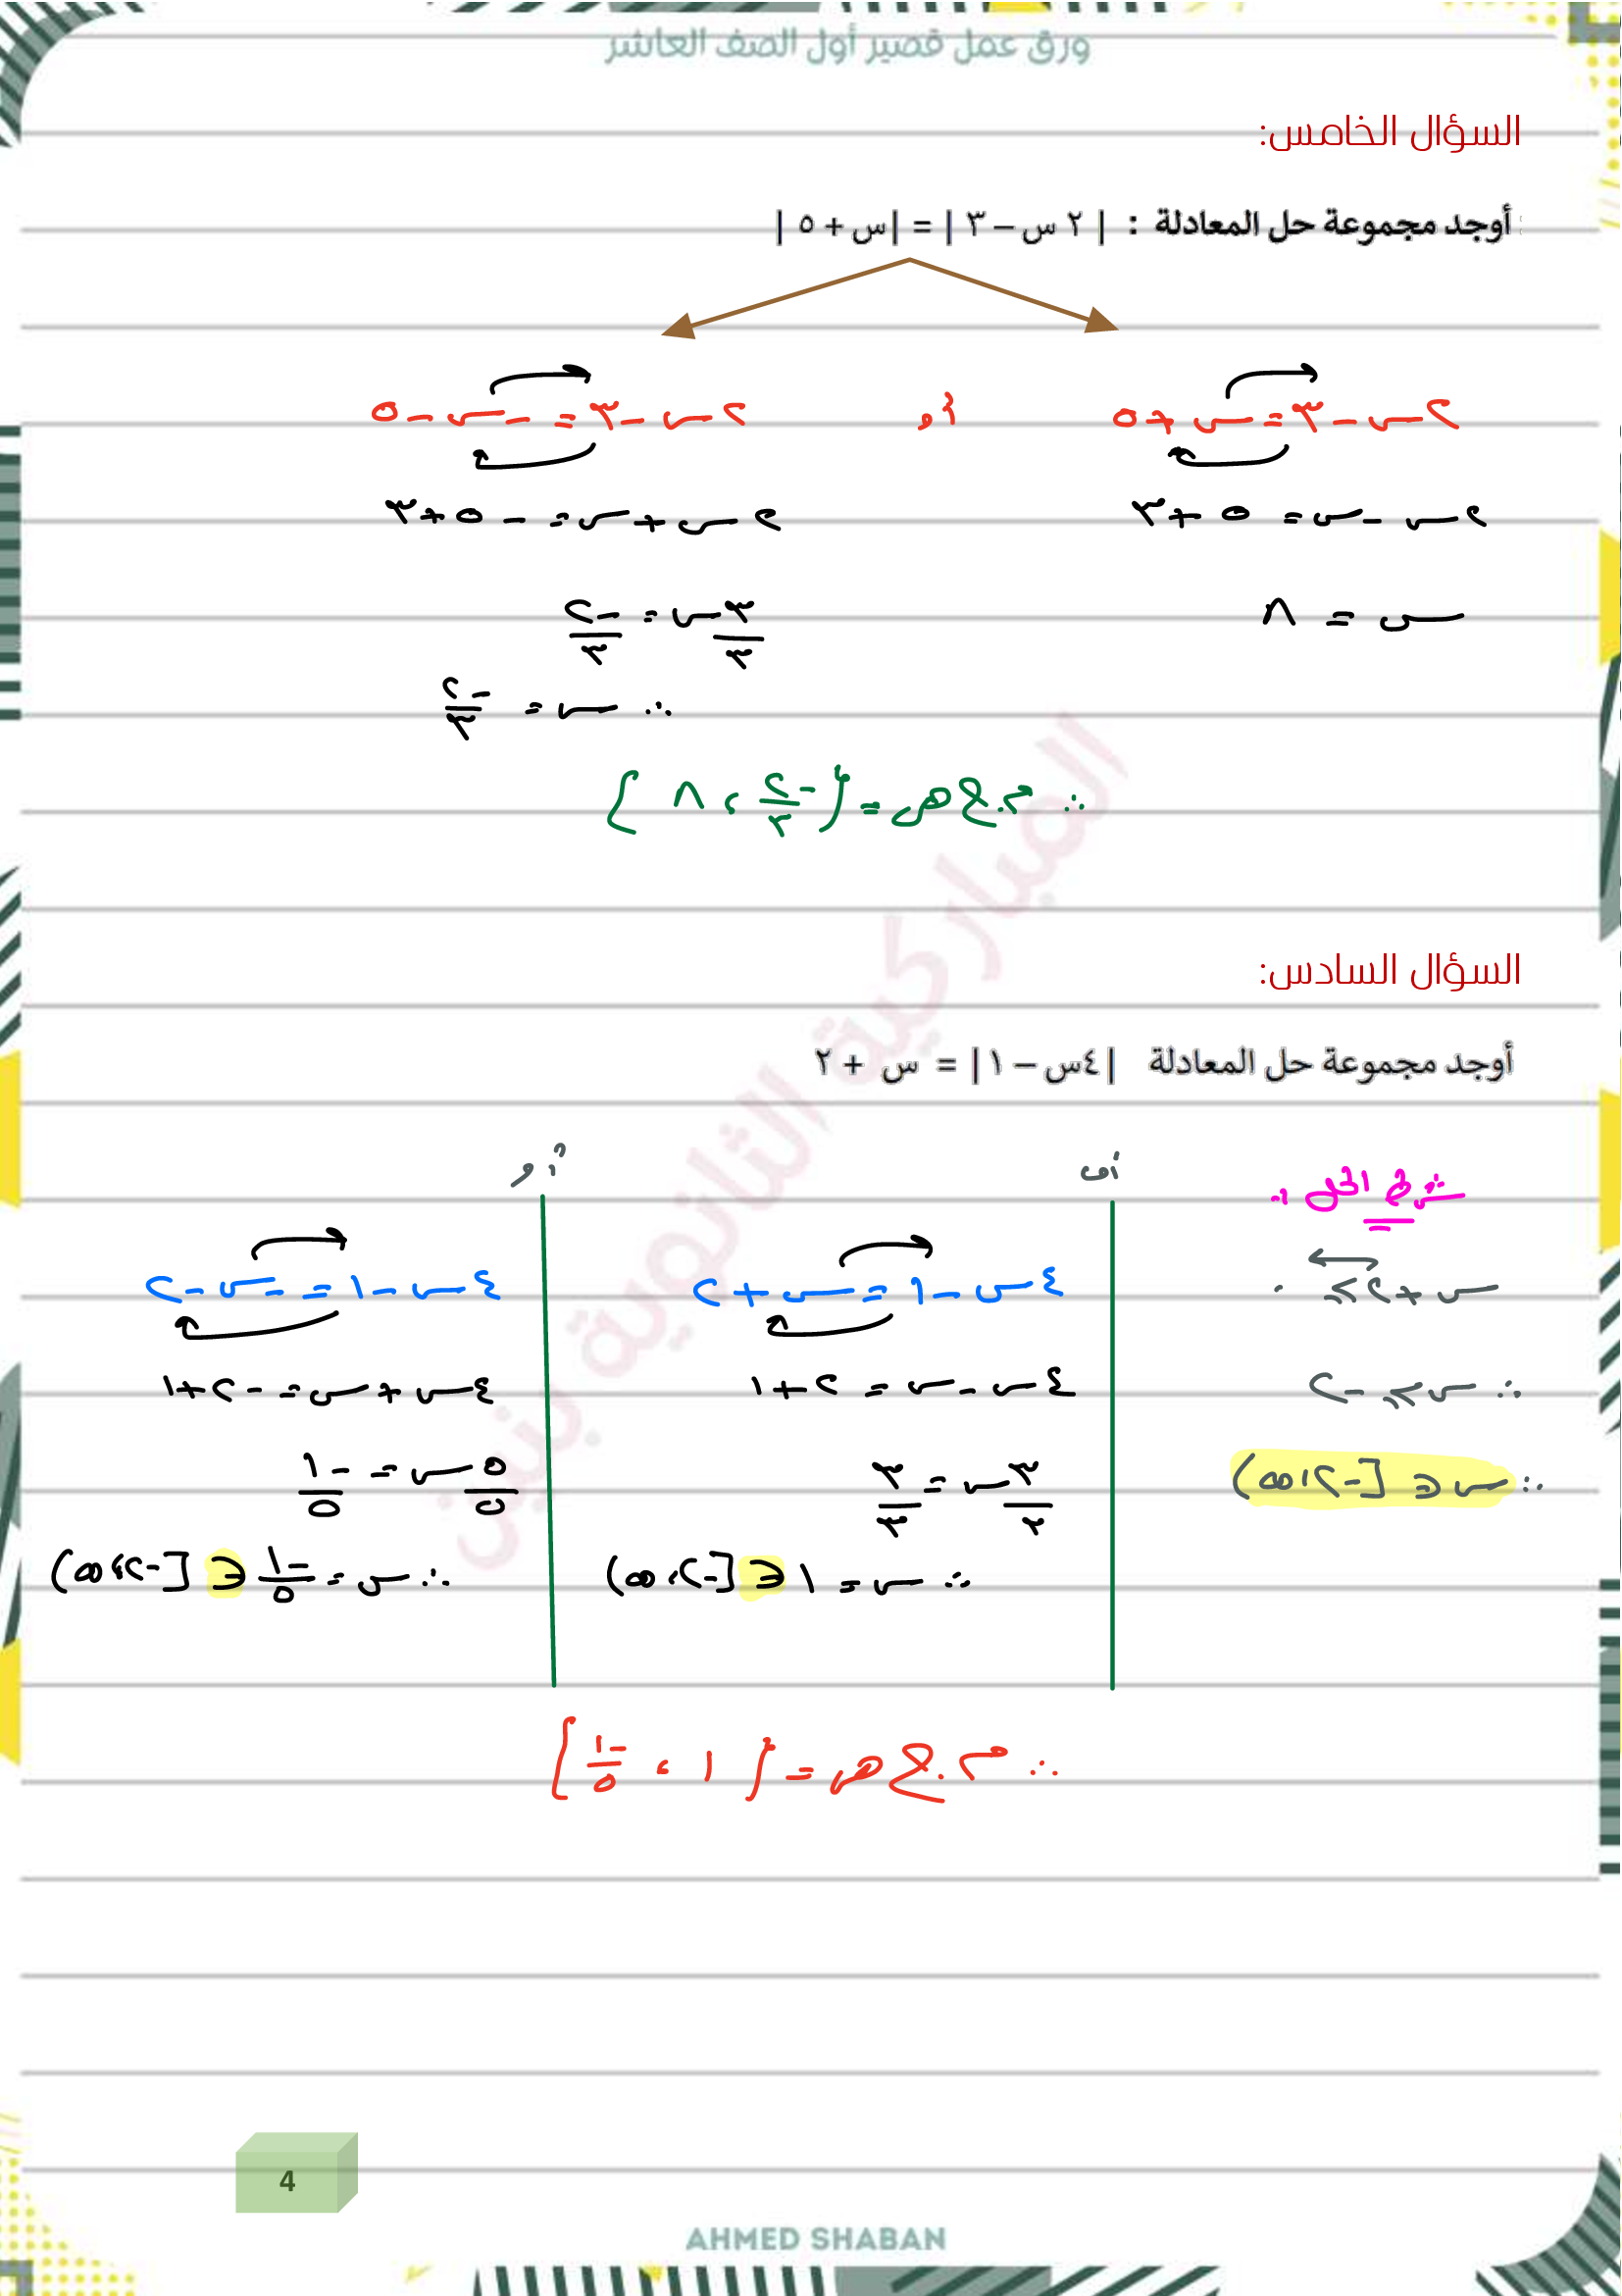 ورق عمل قصير أول الصف العاشر
السؤال الخامس:
أوجد مجموعة حل المعادلة : | ٢ س – ٣ | = |س + ٥ |
٢س – ٣ = س + ٥ أو ٢س – ٣ = – س – ٥
٢س – س = ٥ + ٣ ٢س + س = – ٥ + ٣
س = ٨ ٣س/٣ = –٢/٣
∴ س = –٢/٣
∴ م.ح هـ = {–٢/٣ ، ٨}
السؤال السادس:
أوجد مجموعة حل المعادلة |٤س – ١| = س + ٢
شرط الحل : أما أو
س + ٢ ≥ ٠ ٤س – ١ = س + ٢ ٤س – ١ = – س – ٢
∴ س ≥ –٢ ٤س – س = ٢ + ١ ٤س + س = – ٢ + ١
∴ س ∈ [–٢ ، ∞) ٣س/٣ = ٣/٣ ٥س/٥ = –١/٥
∴ س = ١ ∈ [–٢ ، ∞) ∴ س = –١/٥ ∈ [–٢ ، ∞)
∴ م.ح هـ = {١ ، –١/٥}
المباركية الثانوية بنين
4
AHMED SHABAN